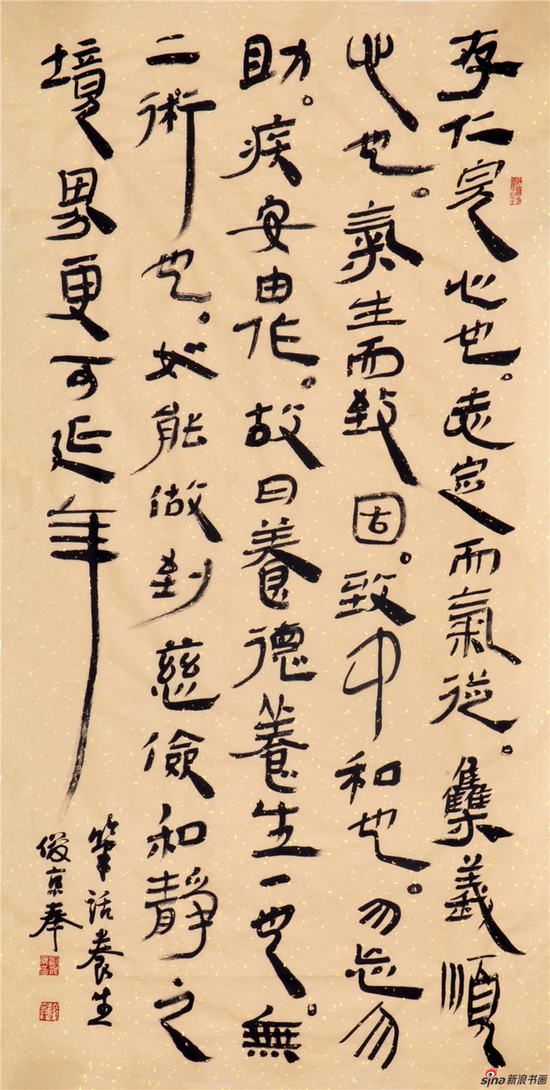 存仁完心也。志定而氣從。集義順
心也。氣生而致固。致中和也。勿忘勿
助。疾安由作。故曰養德養生一也。無
二術也。如能做到慈儉和靜之
境界更可延年
筆話養生
俊京奉
sina新浪书画